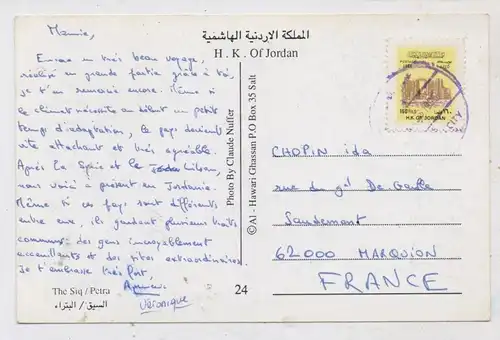 المملكة الاردنية الهاشمية
H. K. Of Jordan
Mamie,
Encore un très beau voyage,
réalisé en grande partie grâce à toi,
je t'en remercie encore. Même si
le climat nécessite au début un petit
temps d'adaptation, le pays devient
vite attachant et très agréable.
Après la Syrie et le Liban,
nous voici à présent en Jordanie.
Même si ces pays sont différents
entre eux, ils gardent plusieurs traits
communs: des gens incroyablement
accueillants et des sites extraordinaires.
Je t'embrasse très fort,
Véronique
The Siq / Petra
السيق / البتراء
24
Photo By Claude Nuffer
© Al - Hawari Ghassan P.O Box 35 Salt
H.K. OF JORDAN
CHOPIN ida
rue du gal De Gaulle
Saudemont
62000 MARQUION
FRANCE